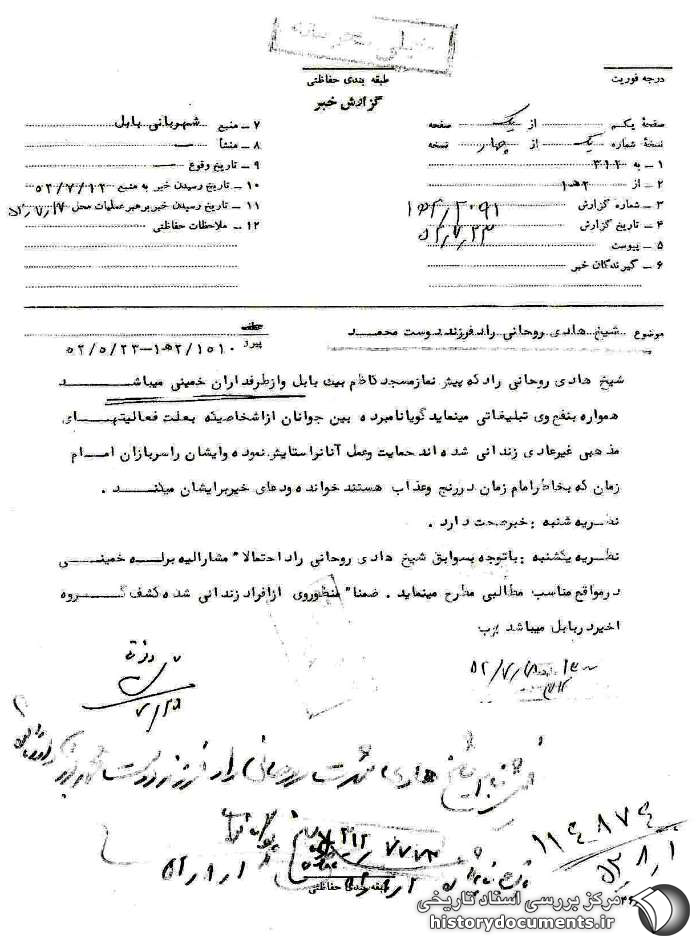 خیلی محرمانه
درجه فوریت
طبقه بندی حفاظتی
گزارش خبر
صفحهٔ یکم از یک صفحه
نسخهٔ شماره یک از چهار نسخه
۱ ـ به ۳۱۲
۲ ـ از ۲هـ۱
۳ ـ شماره گزارش
۴ ـ تاریخ گزارش ۵۲/۷/۲۳
۵ ـ پیوست
۶ ـ گیرندگان خبر
۷ ـ منبع شهربانی بابل
۸ ـ منشأ
۹ ـ تاریخ وقوع
۱۰ ـ تاریخ رسیدن خبر به منبع ۵۲/۷/۱۲
۱۱ ـ تاریخ رسیدن خبر برهبر عملیات محل ۵۲/۷/۱۷
۱۲ ـ ملاحظات حفاظتی
موضوع شیخ هادی روحانی راد فرزند دوست محمد
عطف
پیرو ۱۵۱۰/۲هـ۱ــ۵۲/۵/۲۳
شیخ هادی روحانی راد که پیش نماز مسجد کاظم بیت بابل و از طرفداران خمینی میباشد
همواره بنفع وی تبلیغاتی مینماید گویا نامبرده بین جوانان از اشخاصیکه بعلت فعالیتهای
مذهبی غیرعادی زندانی شده اند حمایت و عمل آنانرا ستایش نموده و ایشان را سربازان امام
زمان که بخاطر امام زمان در رنج و عذاب هستند خوانده و دعای خیر برایشان میکند .
نظریه شنبه : خبر صحت دارد .
نظریه یکشنبه : با توجه بسوابق شیخ هادی روحانی راد احتمالا" مشارالیه برله خمینی
در مواقع مناسب مطالبی مطرح مینماید . ضمنا" منظور وی از افراد زندانی شده کشف گروه
اخیر در بابل میباشد
۵۲/۷/۱۸
۷/۲۵
شیخ هادی روحانی راد فرزند دوست محمد
۳۱۲
۱۱۴۸۷۴
۵۲/۸/۱
طبقه بندی حفاظتی
مرکز بررسی اسناد تاریخی
historydocuments.ir